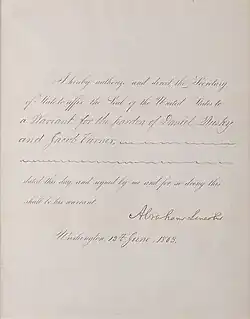 I hereby authorize and direct the Secretary
of State to affix the Seal of the United States to
a Warrant for the pardon of Daniel
and Jacob Varner,
dated this day, and signed by me and for so doing this
shall be his warrant.
Abraham Lincoln
Washington, 13th June, 1863.